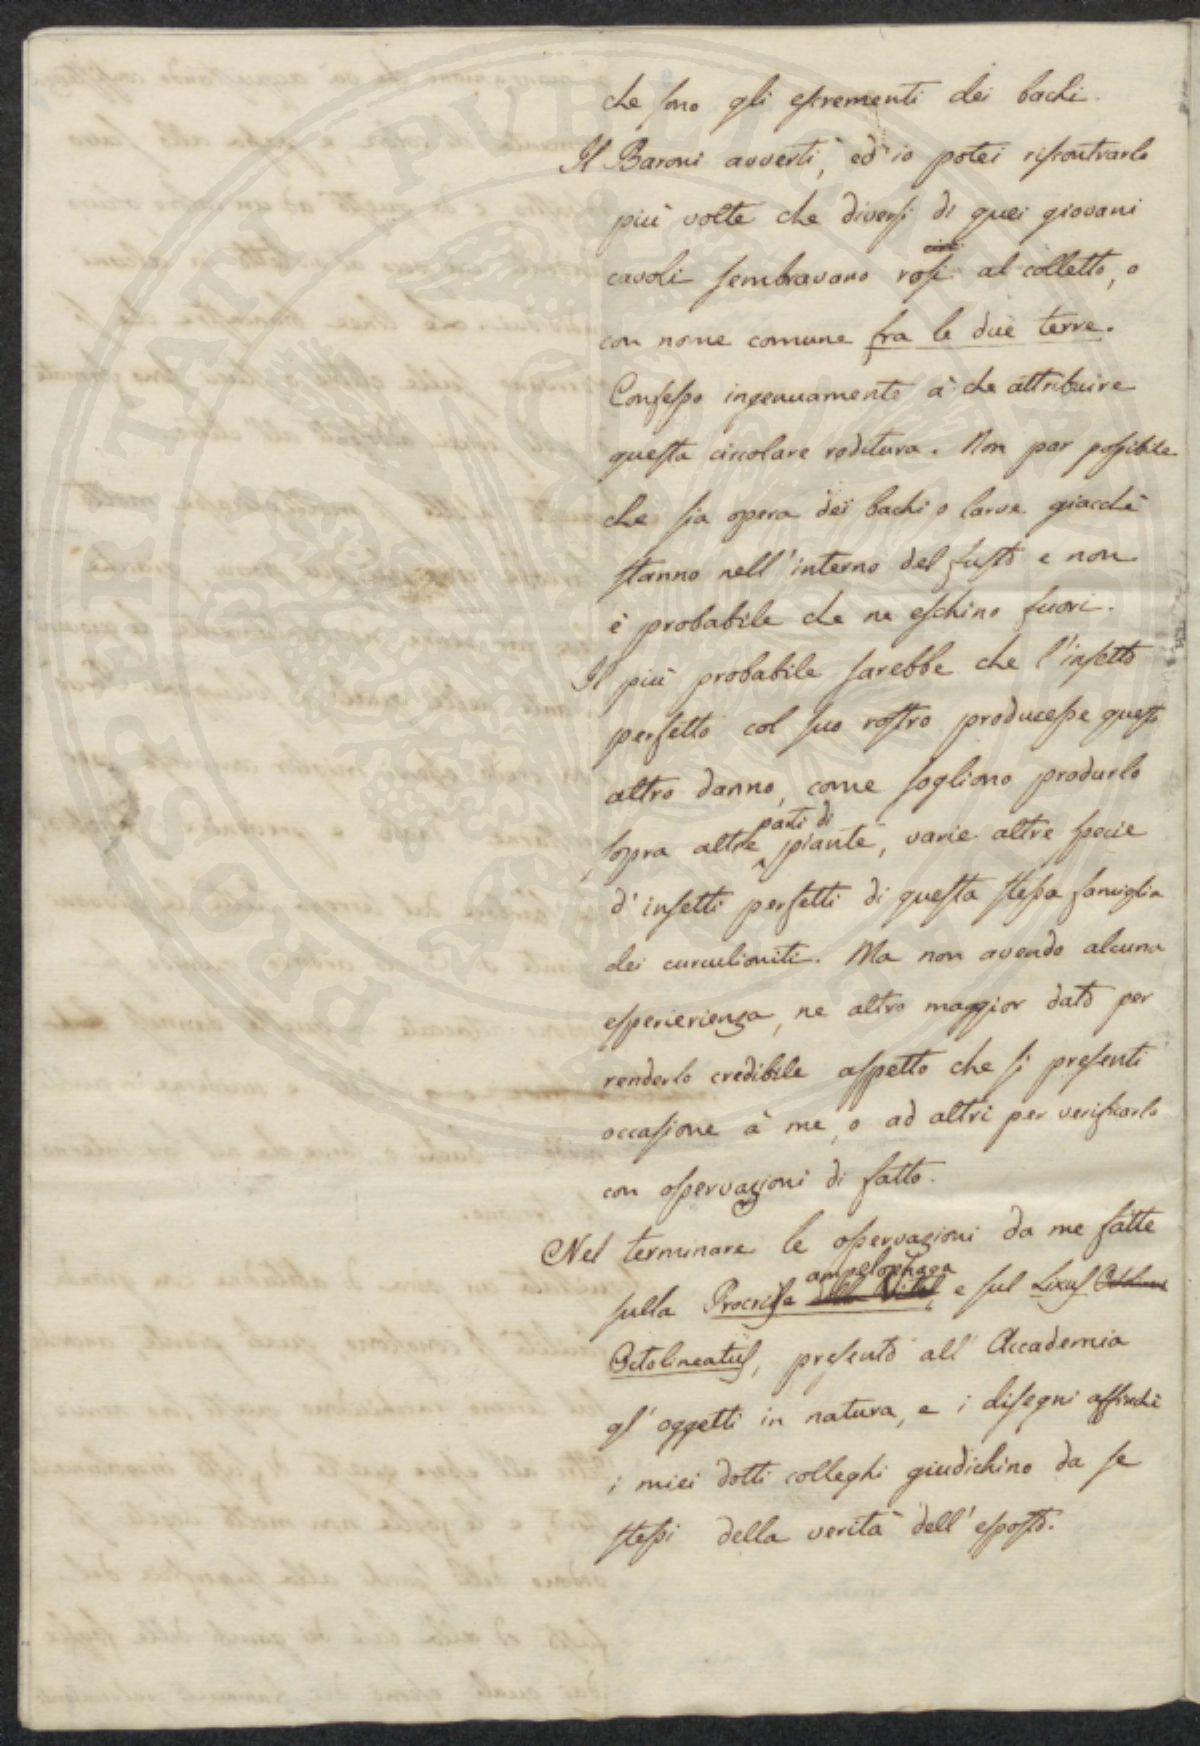 che sono gli escrementi dei bachi.
Il Baroni avvertì, ed io potei riscontrarlo
più volte che diversi di quei giovani
cavoli sembravano rosi al colletto, o
con nome comune fra le due terre.
Confesso ingenuamente à che attribuire
questa circolare roditura. Non par possibile
che sia opera dei bachi o larve giacchè
stanno nell'interno del fusto e non
è probabile che ne eschino fuori.
Il più probabile sarebbe che l'insetto
perfetto col suo rostro producesse questo
altro danno, come sogliono produrlo
sopra altre parti di piante, varie altre specie
d'insetti perfetti di questa stessa famiglia
dei curculioniti. Ma non avendo alcuna
esperierienza, ne altro maggior dato per
renderlo credibile aspetto che si presenti
occasione à me, o ad altri per verificarlo
con osservazioni di fatto.
Nel terminare le osservazioni da me fatte
sulla Procride ampelophaga della Vite, e sul Lixus
Octolineatus, presento all'Accademia
gl'oggetti in natura, e i disegni affinchè
i miei dotti colleghi giudichino da se
stessi della verità dell'esposto.